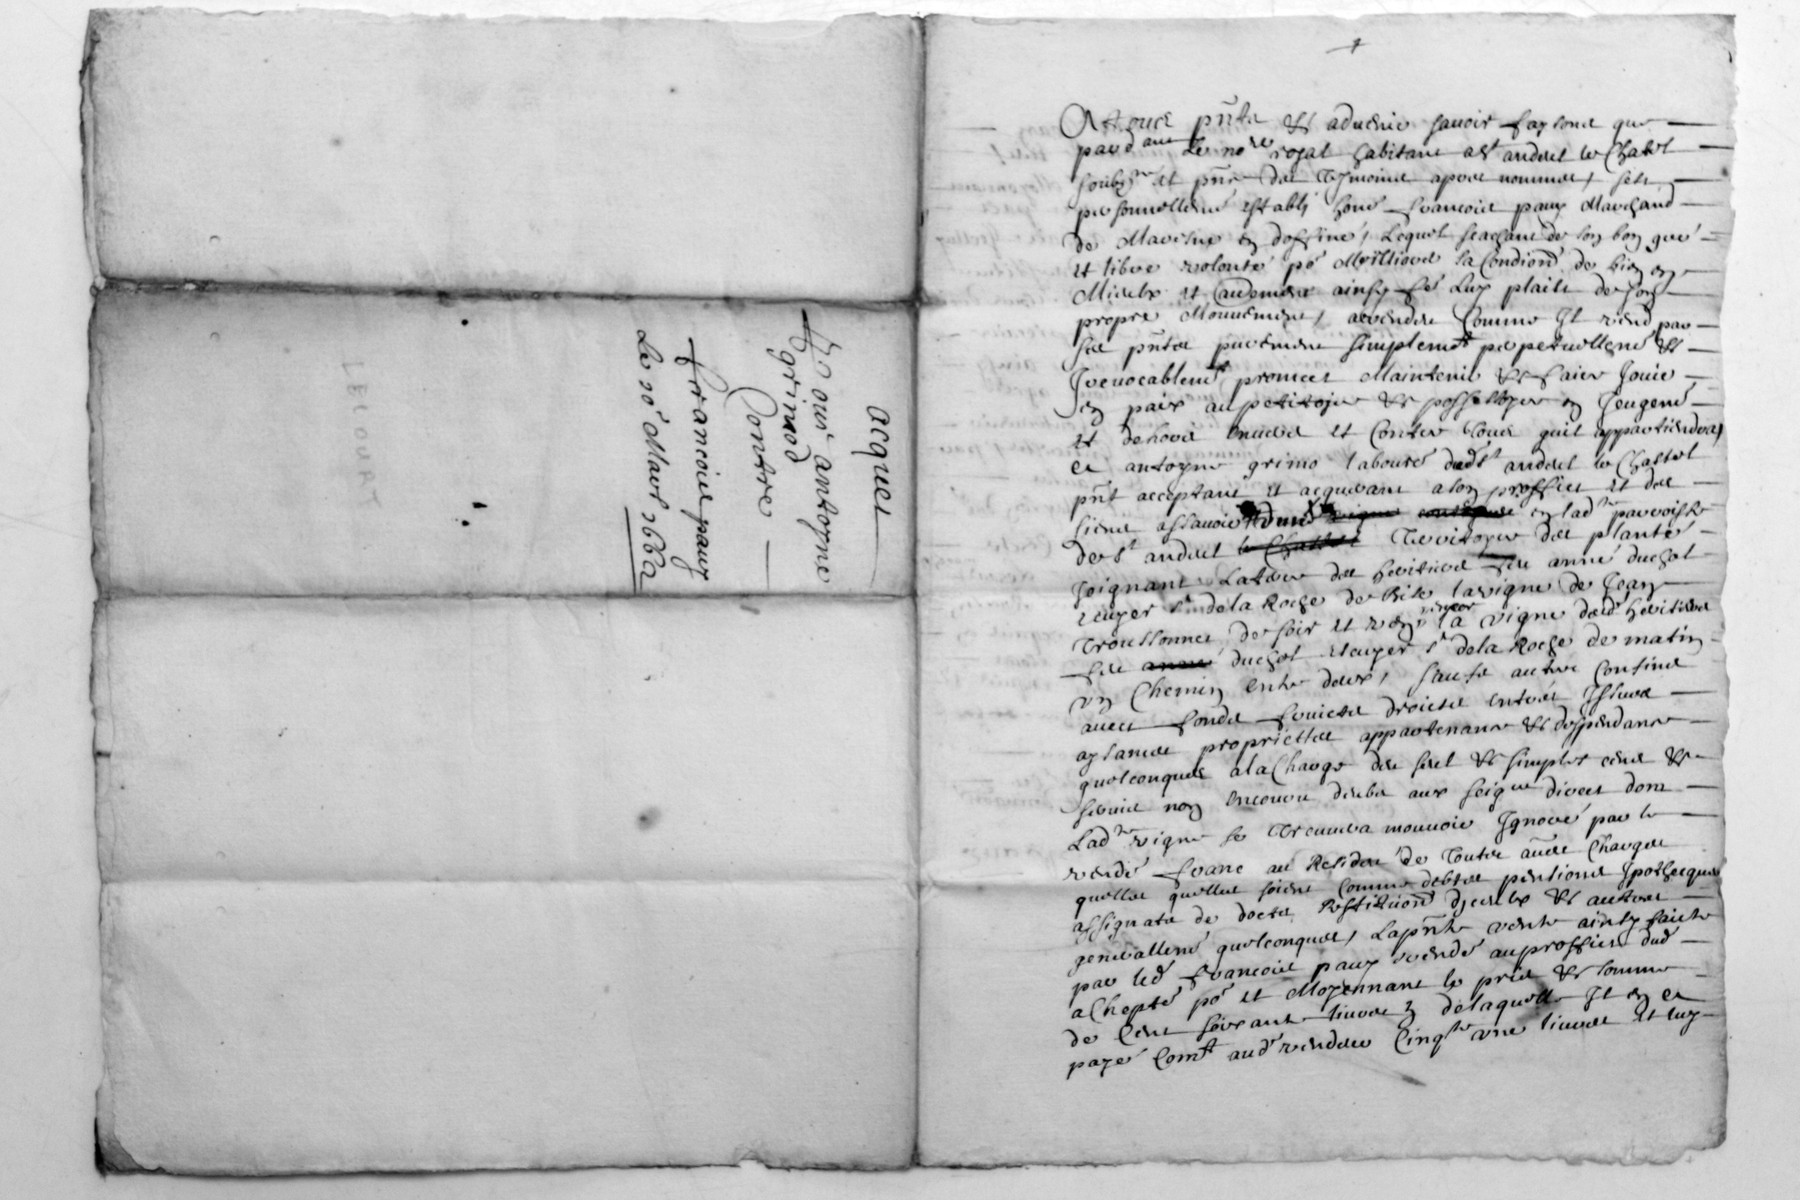 acquet
Pour antoyne
grimod
Contre
francois paux
Le 20e Mars 1662
LECOURT
A touct pñts & aduenir sauoir faisons que
pard'auant Le nore royal habitant a St andeol le Chastel
soubzné et pñce des tesmoins apres nommes, sest
personnellemt estably honé francois paux Marchand
de en doffiné, Lequel scachant de son bon gré
et libre volonté po Meilliorer sa Condion de bien en
Mieulx et aultrement ainsy se Luy plaist de son
propre Mouuement, a vendu Comme Il vend par
ses pñtes purement simplemt perpetuellemt &
Irreuocablemt promect Maintenir & faire Jouir
en paix au petitoire & possessoire en Jeugemt
et dehors enuers et Contre tous quil appartiendra,
a antoyne grimo laboure dudt St andeol le Chastel
pñt acceptant et acquerant a son proffict et des
siens assauoir en ladte parroisse
de St andeol Territoyre des plante
Joignant La terre des heritiers feu anne duchol
escuyer Sr de la Roche de Bize la vigne de Jean
Troussonnet de soir et vent la vigne desd heritiers
feu duchol escuyer Sr de la Roche de matin
vn Chemin entre deux, sauf se autre Confins
auec fonds fruicts droicts entrées Issues
aysances propriettes appartenance & deppendance
quelconques a la Charge du seul & simple cens &
seruis non encouru deube aux seigrs direct dont
Ladte vigne se treuuera mouuoir Ignoré par le
vendr franc au Residu de toutes aures Charges
quelles quelles soient comme debtes pentions Ipothecques
assignats de docte Restituon d'jceulx & autres
generallemt quelconques, La pñte vente ainsy faicte
par led francois paux vendr au proffict dud
achepteur por et Moyennant le prix & somme
de Cent soixante liures de laquelle Il en a
payé Comt aud vendeur Cinqte vne liures et luy